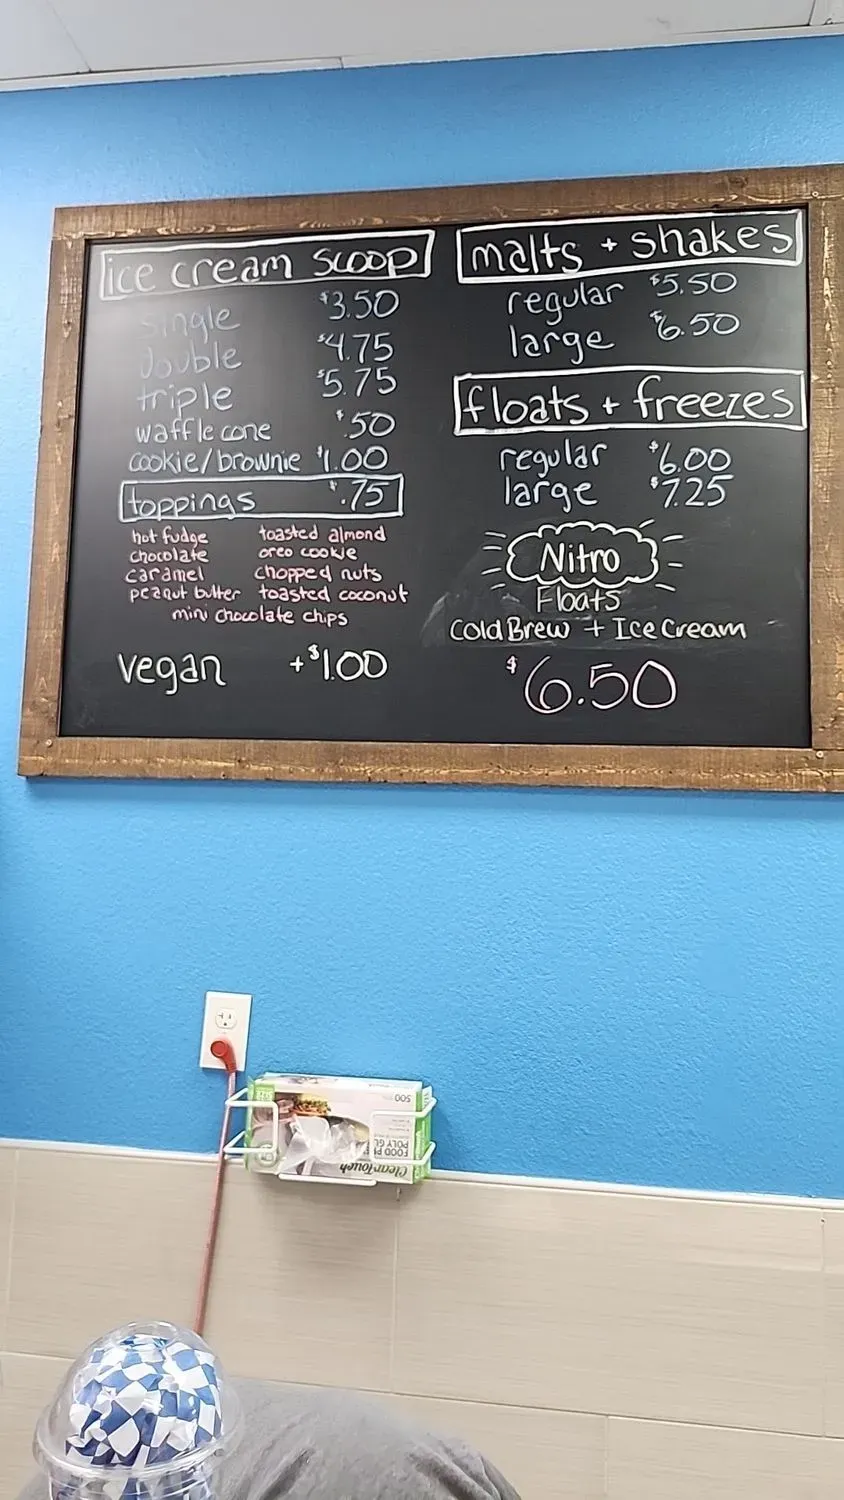 ice cream scoop
single $3.50
double $4.75
triple $5.75
waffle cone $.50
cookie/brownie $1.00
toppings $.75
hot fudge toasted almond
chocolate oreo cookie
caramel chopped nuts
peanut butter toasted coconut
mini chocolate chips
vegan +$1.00
malts + shakes
regular $5.50
large $6.50
floats + freezes
regular $6.00
large $7.25
Nitro
Floats
Cold Brew + Ice Cream
$6.50
500
ClearTouch
FOOD
POLY